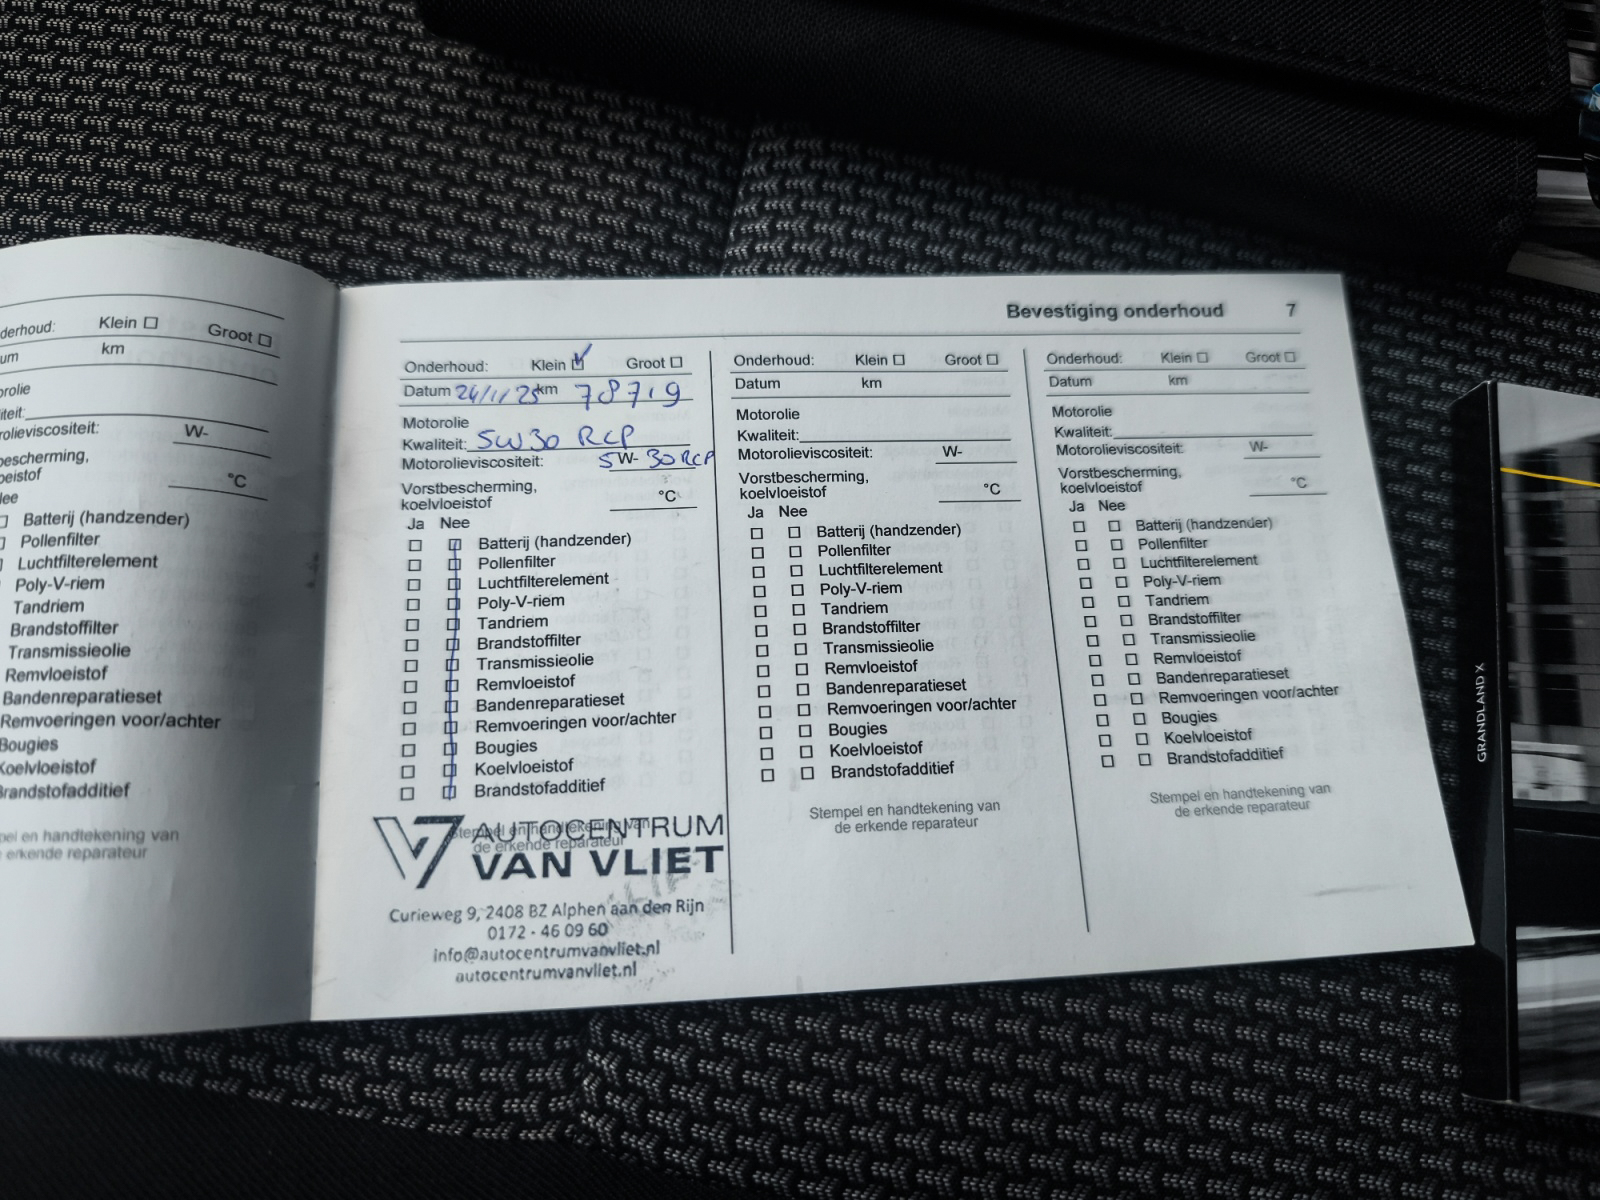 nderhoud: Klein Groot
um km
orolie
iteit:
rolieviscositeit: W-
bescherming,
oeistof °C
lee
Batterij (handzender)
Pollenfilter
Luchtfilterelement
Poly-V-riem
Tandriem
Brandstoffilter
Transmissieolie
Remvloeistof
Bandenreparatieset
Remvoeringen voor/achter
Bougies
Koelvloeistof
Brandstofadditief
pel en handtekening van
e erkende reparateur
Bevestiging onderhoud 7
Onderhoud: Klein Groot
Datum 24/11/25 km 78719
Motorolie
Kwaliteit: 5W30 RCP
Motorolieviscositeit: 5W-30RCP
Vorstbescherming,
koelvloeistof °C
Ja Nee
Batterij (handzender)
Pollenfilter
Luchtfilterelement
Poly-V-riem
Tandriem
Brandstoffilter
Transmissieolie
Remvloeistof
Bandenreparatieset
Remvoeringen voor/achter
Bougies
Koelvloeistof
Brandstofadditief
Stempel en handtekening van
de erkende reparateur
AUTOCENTRUM
VAN VLIET
Curieweg 9, 2408 BZ Alphen aan den Rijn
0172 - 46 09 60
info@autocentrumvanvliet.nl
autocentrumvanvliet.nl
Onderhoud: Klein Groot
Datum km
Motorolie
Kwaliteit:
Motorolieviscositeit: W-
Vorstbescherming,
koelvloeistof °C
Ja Nee
Batterij (handzender)
Pollenfilter
Luchtfilterelement
Poly-V-riem
Tandriem
Brandstoffilter
Transmissieolie
Remvloeistof
Bandenreparatieset
Remvoeringen voor/achter
Bougies
Koelvloeistof
Brandstofadditief
Stempel en handtekening van
de erkende reparateur
Onderhoud: Klein Groot
Datum km
Motorolie
Kwaliteit:
Motorolieviscositeit: W-
Vorstbescherming,
koelvloeistof °C
Ja Nee
Batterij (handzender)
Pollenfilter
Luchtfilterelement
Poly-V-riem
Tandriem
Brandstoffilter
Transmissieolie
Remvloeistof
Bandenreparatieset
Remvoeringen voor/achter
Bougies
Koelvloeistof
Brandstofadditief
Stempel en handtekening van
de erkende reparateur
GRANDLAND X